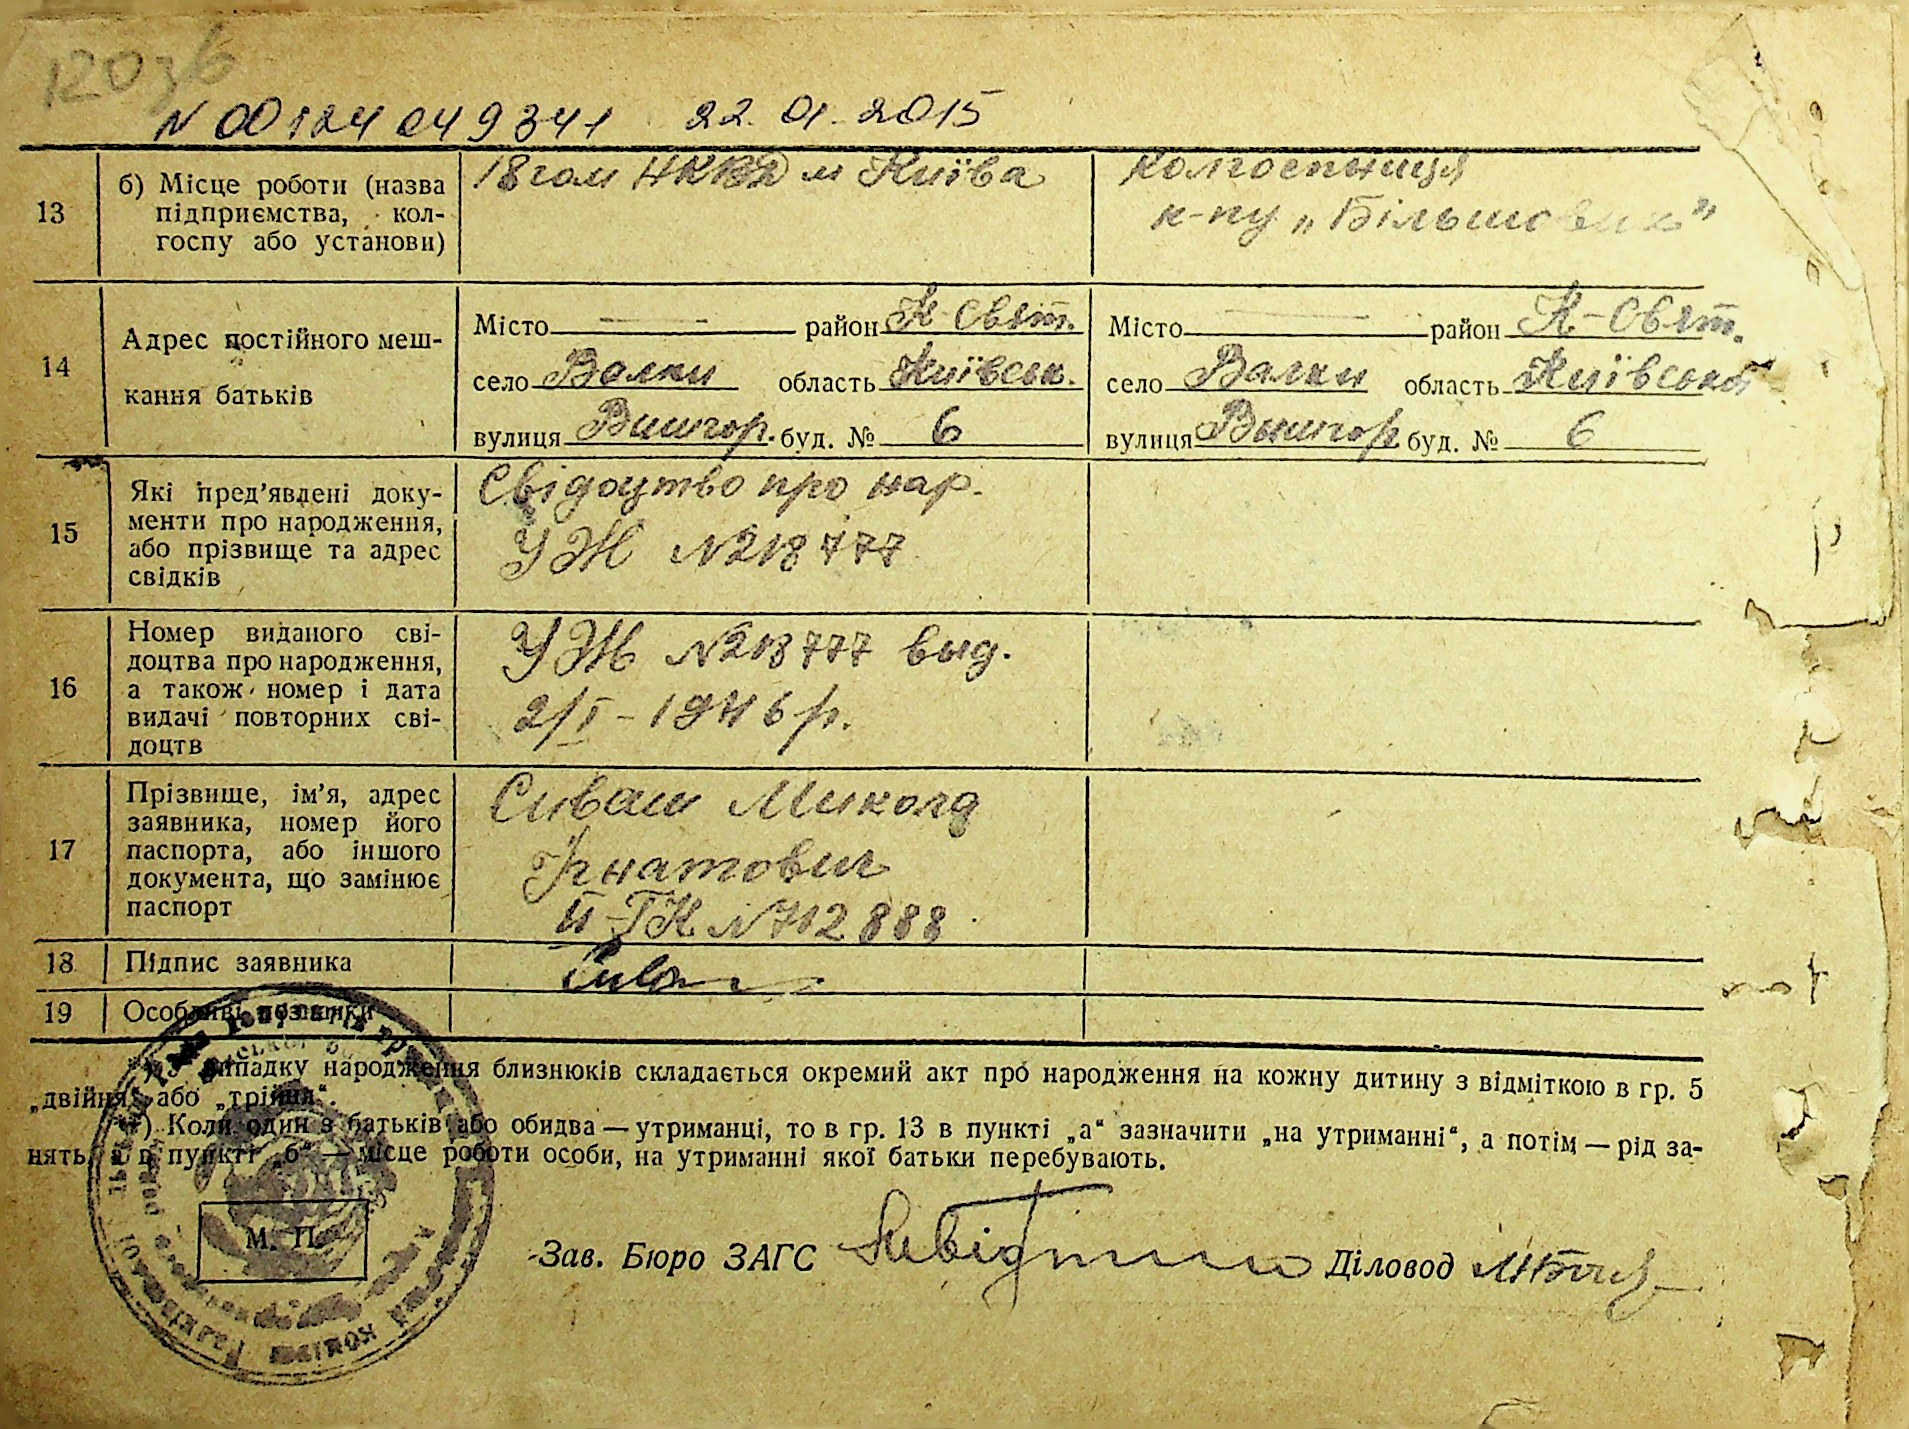 120зв
N 00124049341 22.01.2015
13 б) Місце роботи (назва підприємства, колгоспу або установи)
18 гом НКВД м Київа
колгоспниця
к-пу „Більшовик"
14 Адрес постійного мешкання батьків
Місто — район К-Свят.
село Валки область Київськ.
вулиця Вишгор. буд. № 6
Місто — район К-Свят.
село Валки область Київська
вулиця Вишгор буд. № 6
15 Які пред'явлені документи про народження, або прізвище та адрес свідків
Свідоцтво про нар.
УЖ N218777
16 Номер виданого свідоцтва про народження, а також номер і дата видачі повторних свідоцтв
УЖ N218777 выд.
2/I - 1946 р.
17 Прізвище, ім'я, адрес заявника, номер його паспорта, або іншого документа, що замінює паспорт
Сиваш Микола
Ігнатович
II-ТК N712888
18 Підпис заявника
19 Особливі позначки
*) У випадку народження близнюків складається окремий акт про народження на кожну дитину з відміткою в гр. 5
„двійня" або „трійня".
**) Коли один з батьків або обидва — утриманці, то в гр. 13 в пункті „а" зазначити „на утриманні", а потім — рід за-
нять, а в пункті „б" — місце роботи особи, на утриманні якої батьки перебувають.
М. П.
Зав. Бюро ЗАГС Діловод